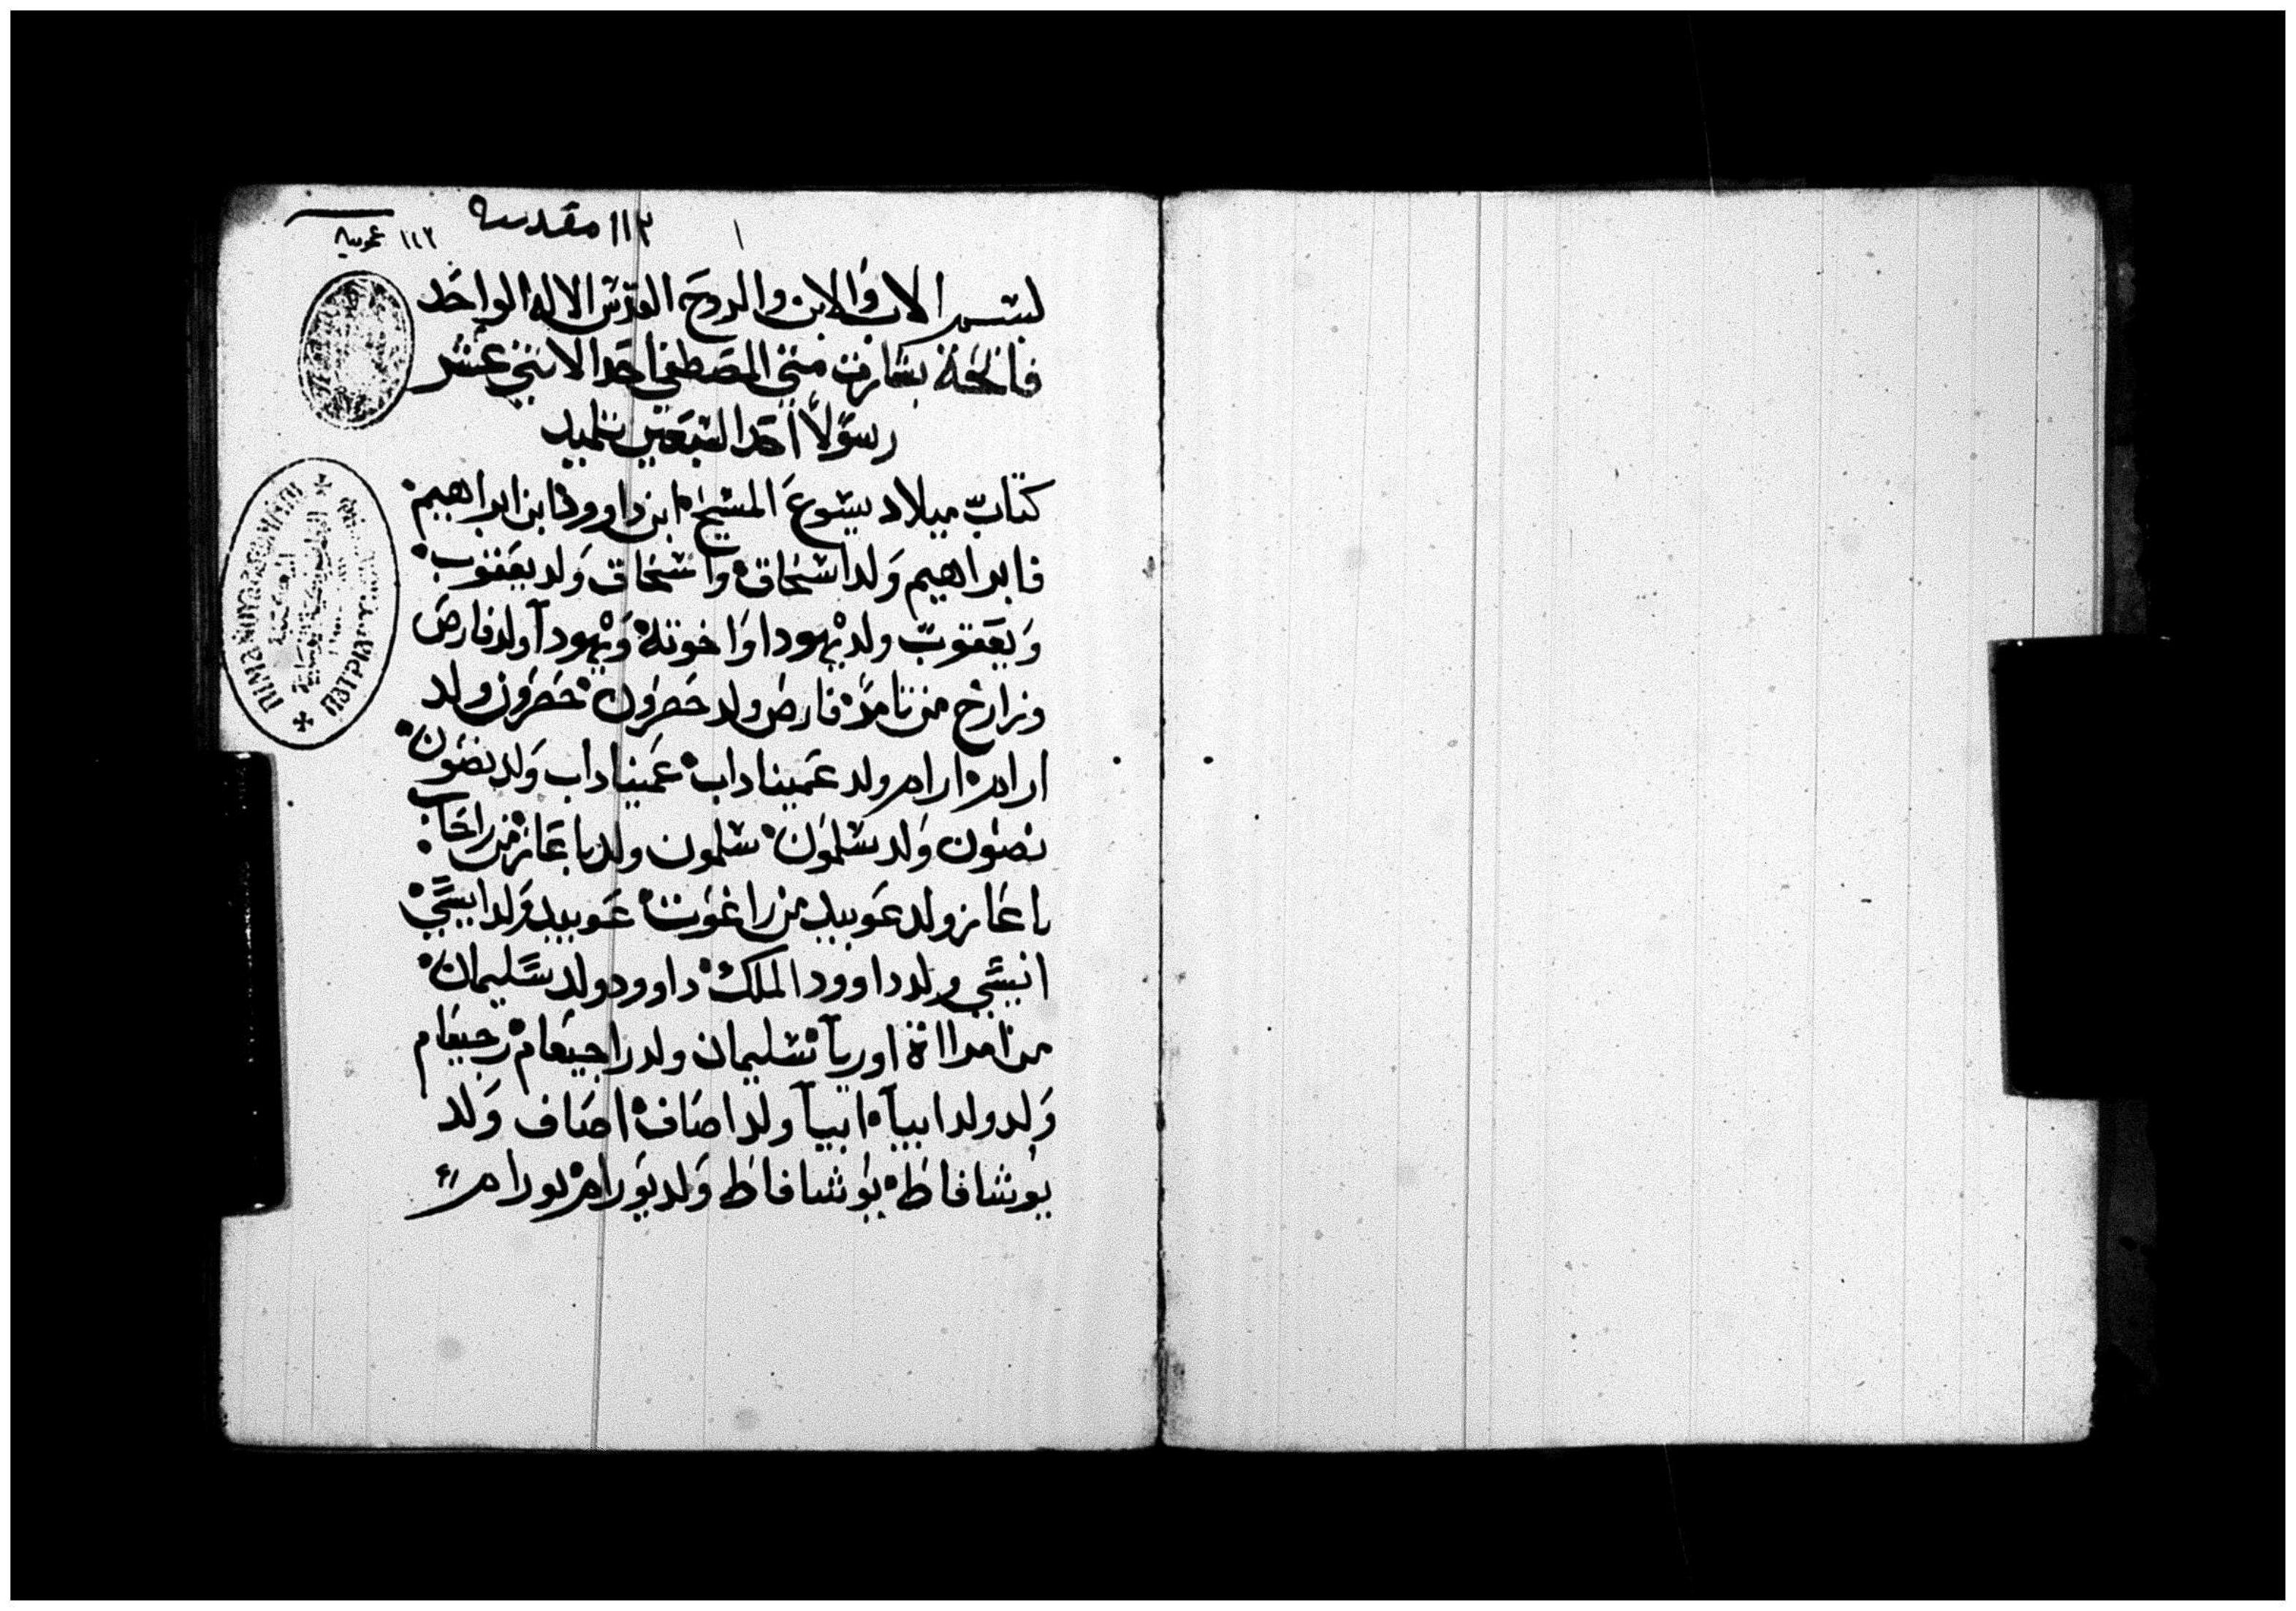 ١١٣ مقدسه
١
١١٢ عموميه
لبسم الاب والابن والروح القدس الاله الواحد
فاتحة بشارت متي المصطفي احد الاثني عشر
رسولاً احد السبعين تلميد
كتاب ميلاد يسوع المسيح ابن داوود ابن ابراهيم
فابراهيم ولد اسحاق واسحاق ولد يعقوب
ويعقوب ولد يهودا واخوته ويهودا ولد فارص
وزارخ من تامر فارص ولد حصرون حصرون ولد
ارام ارام ولد عميناداب عميناداب ولد نصون
نصون ولد سلمون سلمون ولد باعاز من راحاب
باعاز ولد عوبيد من راغوت عوبيد ولد ايسي
ايسي ولد داوود الملك داوود ولد سليمان
من امرااة اوريا سليمان ولد راجبعام رجبعام
ولد ولد ابيا ابيا ولد اصاف اصاف ولد
يوشافاط يوشافاط ولد يورام يورام